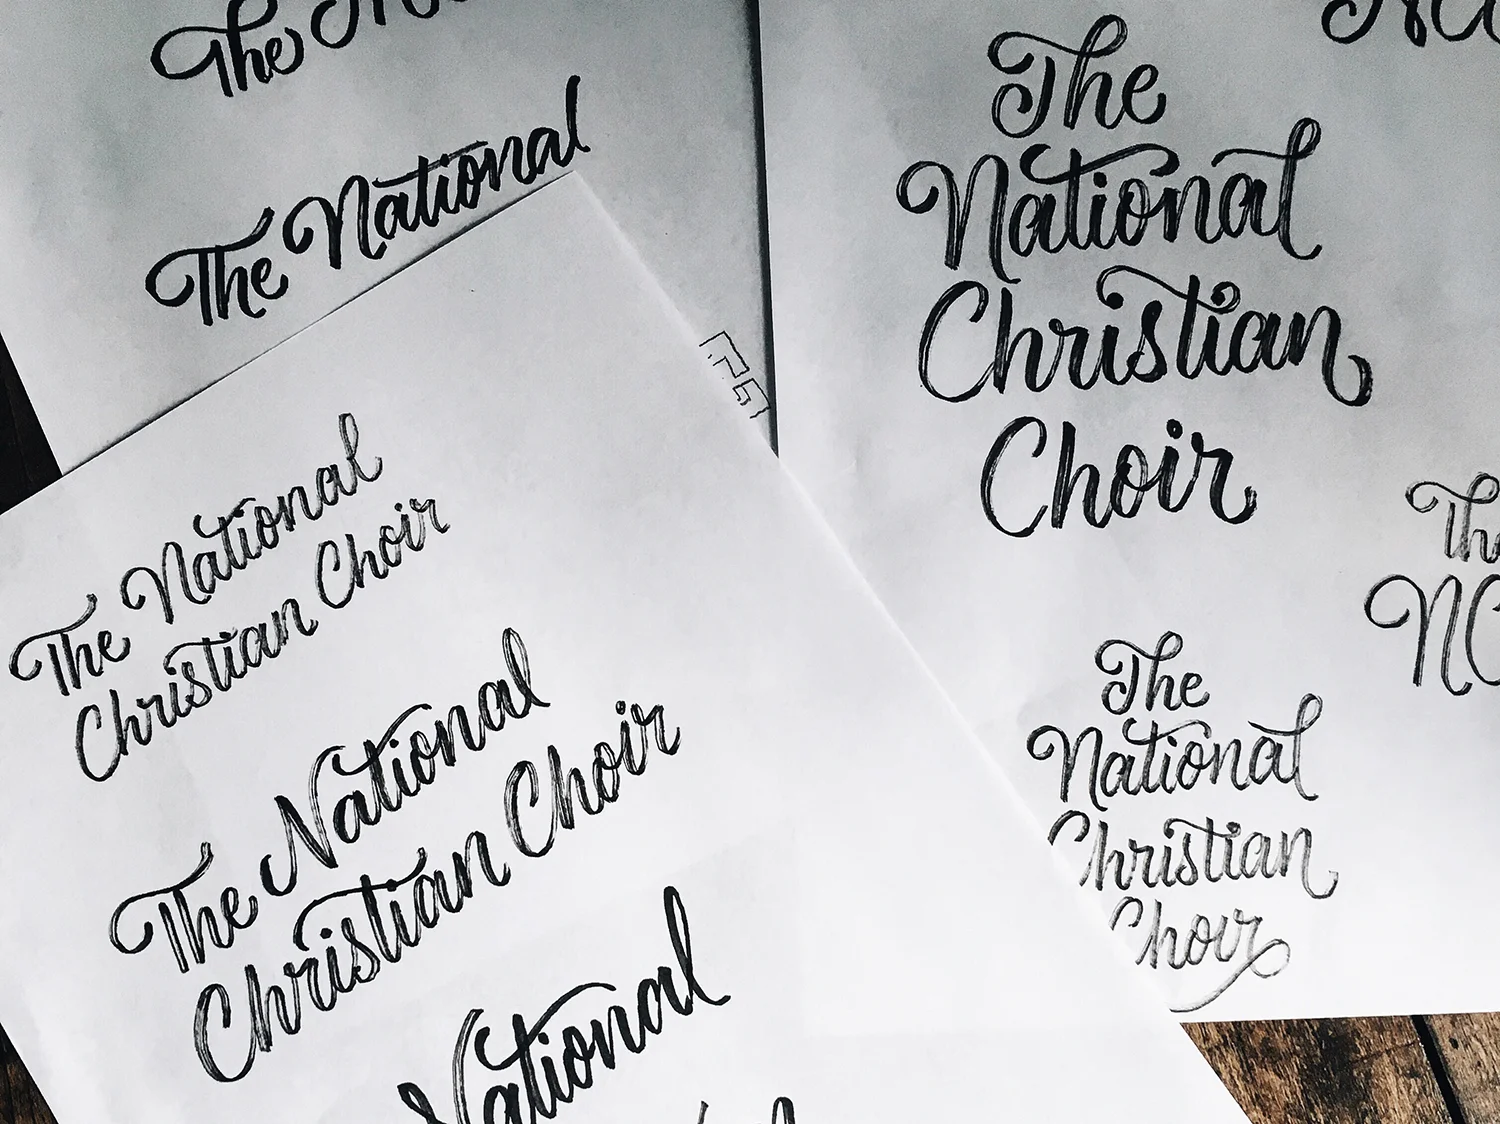 The
The National
The National
Christian Choir
The National
Christian Choir
National
The
National
Christian
Choir
The
National
Christian
Choir